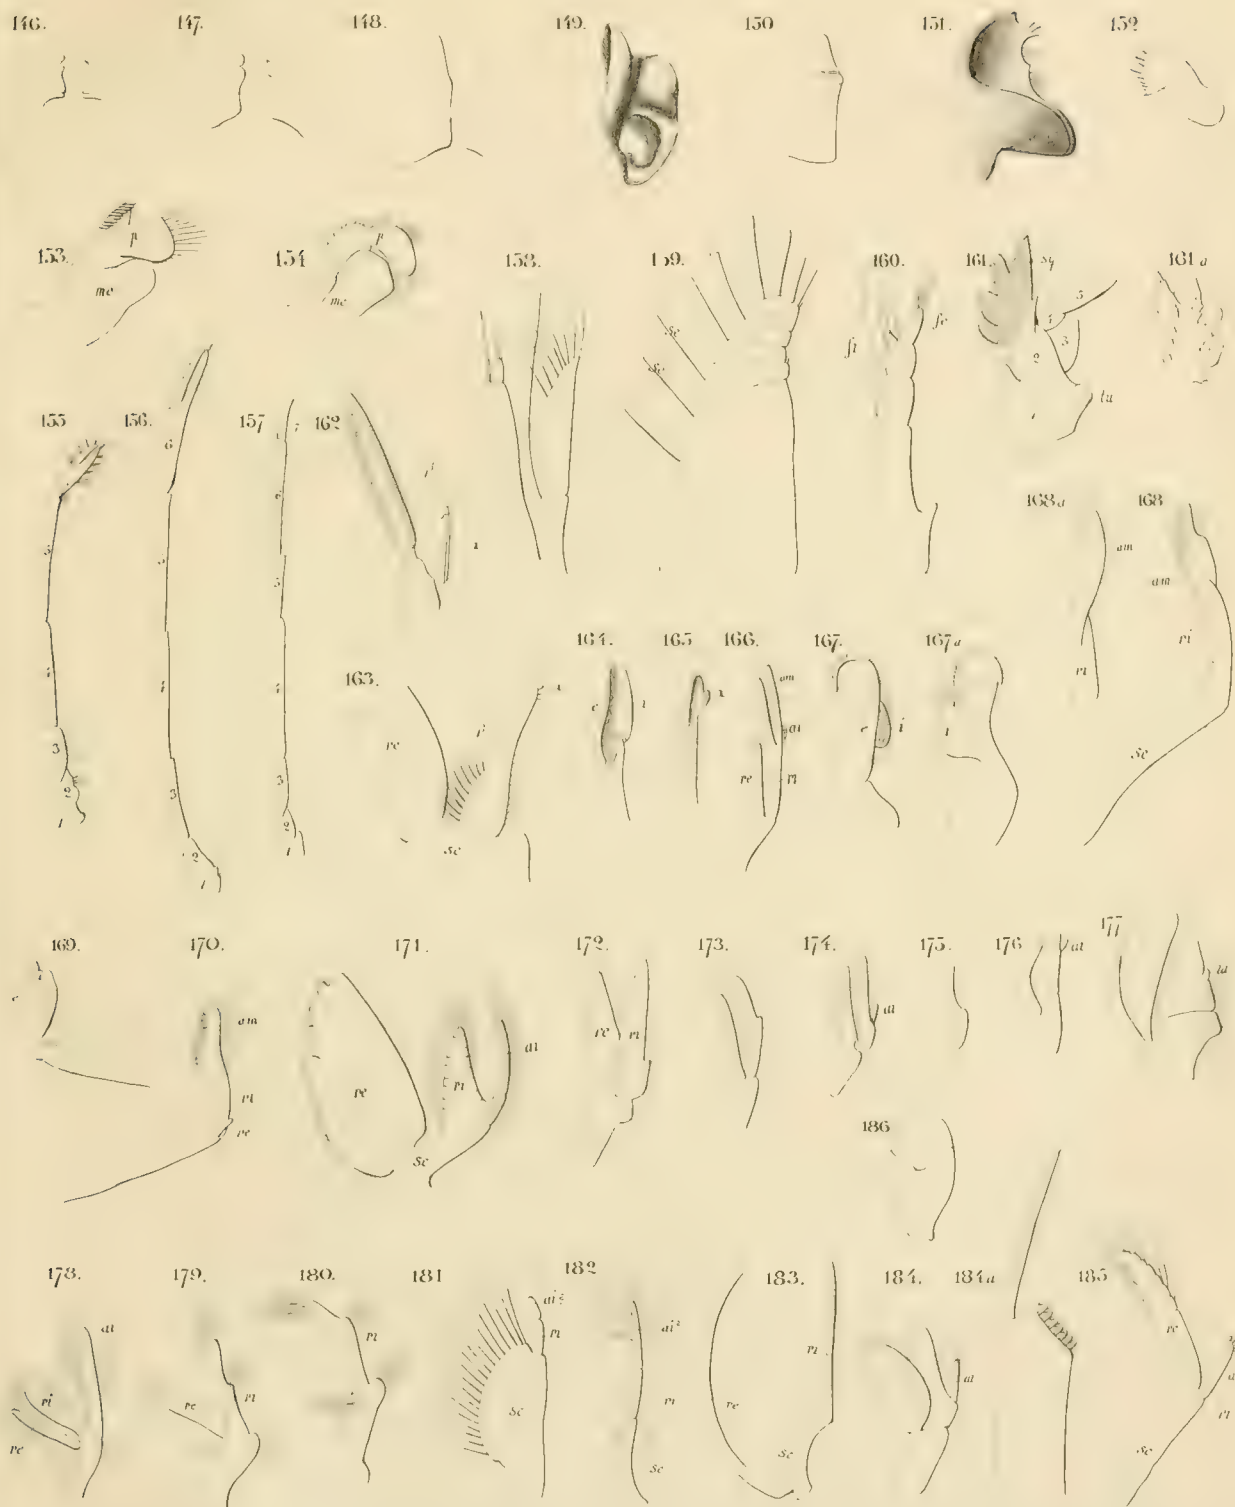 146. 147. 148. 149. 150 151. 152
153. p me 154 p me 158. 159. sc sc 160. fi fe 161. sq 5 4 3 2 tu 161 a
155 5 4 3 2 1 156. 6 5 4 3 2 1 157 7 6 5 4 3 2 1 162 p i
168 a am ri 168 am ri sc
163. re p i sc 164. e i 165 i 166. am ai re ri 167. e i 167 a i
169. e 170. am ri re 171. re ri ai sc 172. re ri 173. 174. ai 175. 176 ai 177 la
186
178. ai ri re 179. re ri 180. ri i 181 ai ri sc 182 ai² ri sc 183. re ri sc 184. ai 184 a 185 re ri sc